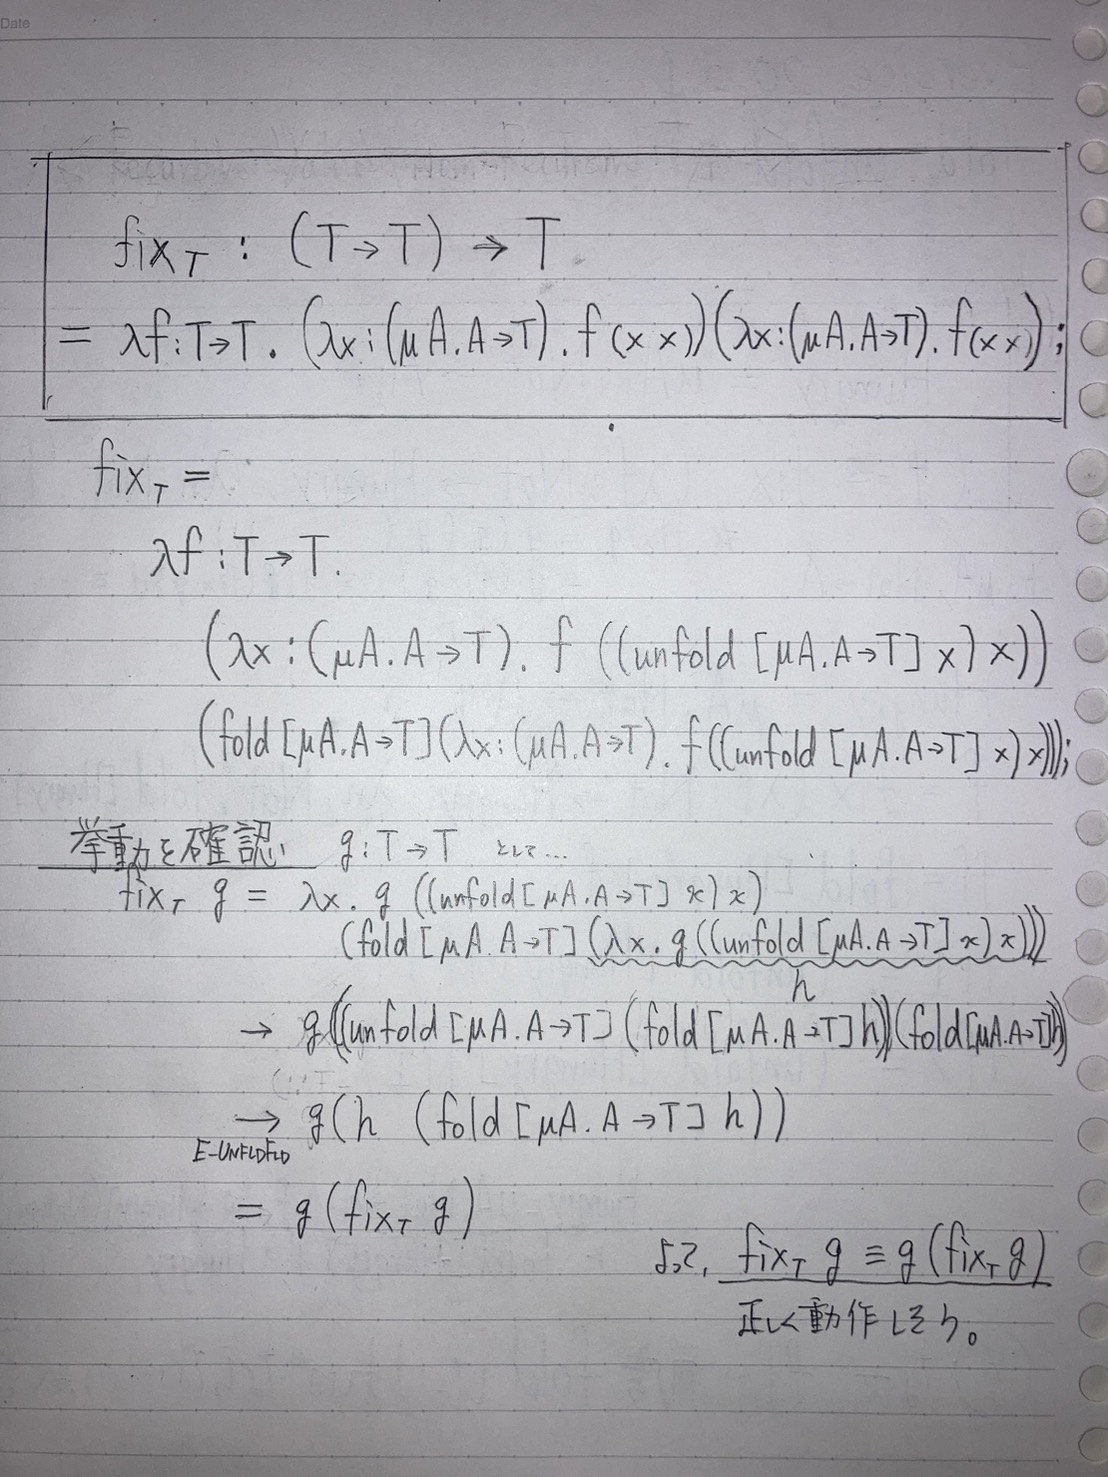 Date
fix_T : (T→T) → T
= λf:T→T. (λx:(μA.A→T).f(x x))(λx:(μA.A→T).f(x x));
fix_T =
λf:T→T.
(λx:(μA.A→T). f ((unfold [μA.A→T] x) x))
(fold [μA.A→T](λx:(μA.A→T). f((unfold [μA.A→T] x) x)));
挙動を確認 g:T→T として...
fix_T g = λx. g ((unfold[μA.A→T] x) x)
(fold[μA.A→T](λx.g((unfold[μA.A→T] x) x)))
h
→ g((unfold[μA.A→T](fold[μA.A→T]h))(fold[μA.A→T]h))
→ g(h (fold[μA.A→T] h))
E-UNFLDFLD
= g(fix_T g)
よって, fix_T g ≡ g(fix_T g)
正しく動作しそう。